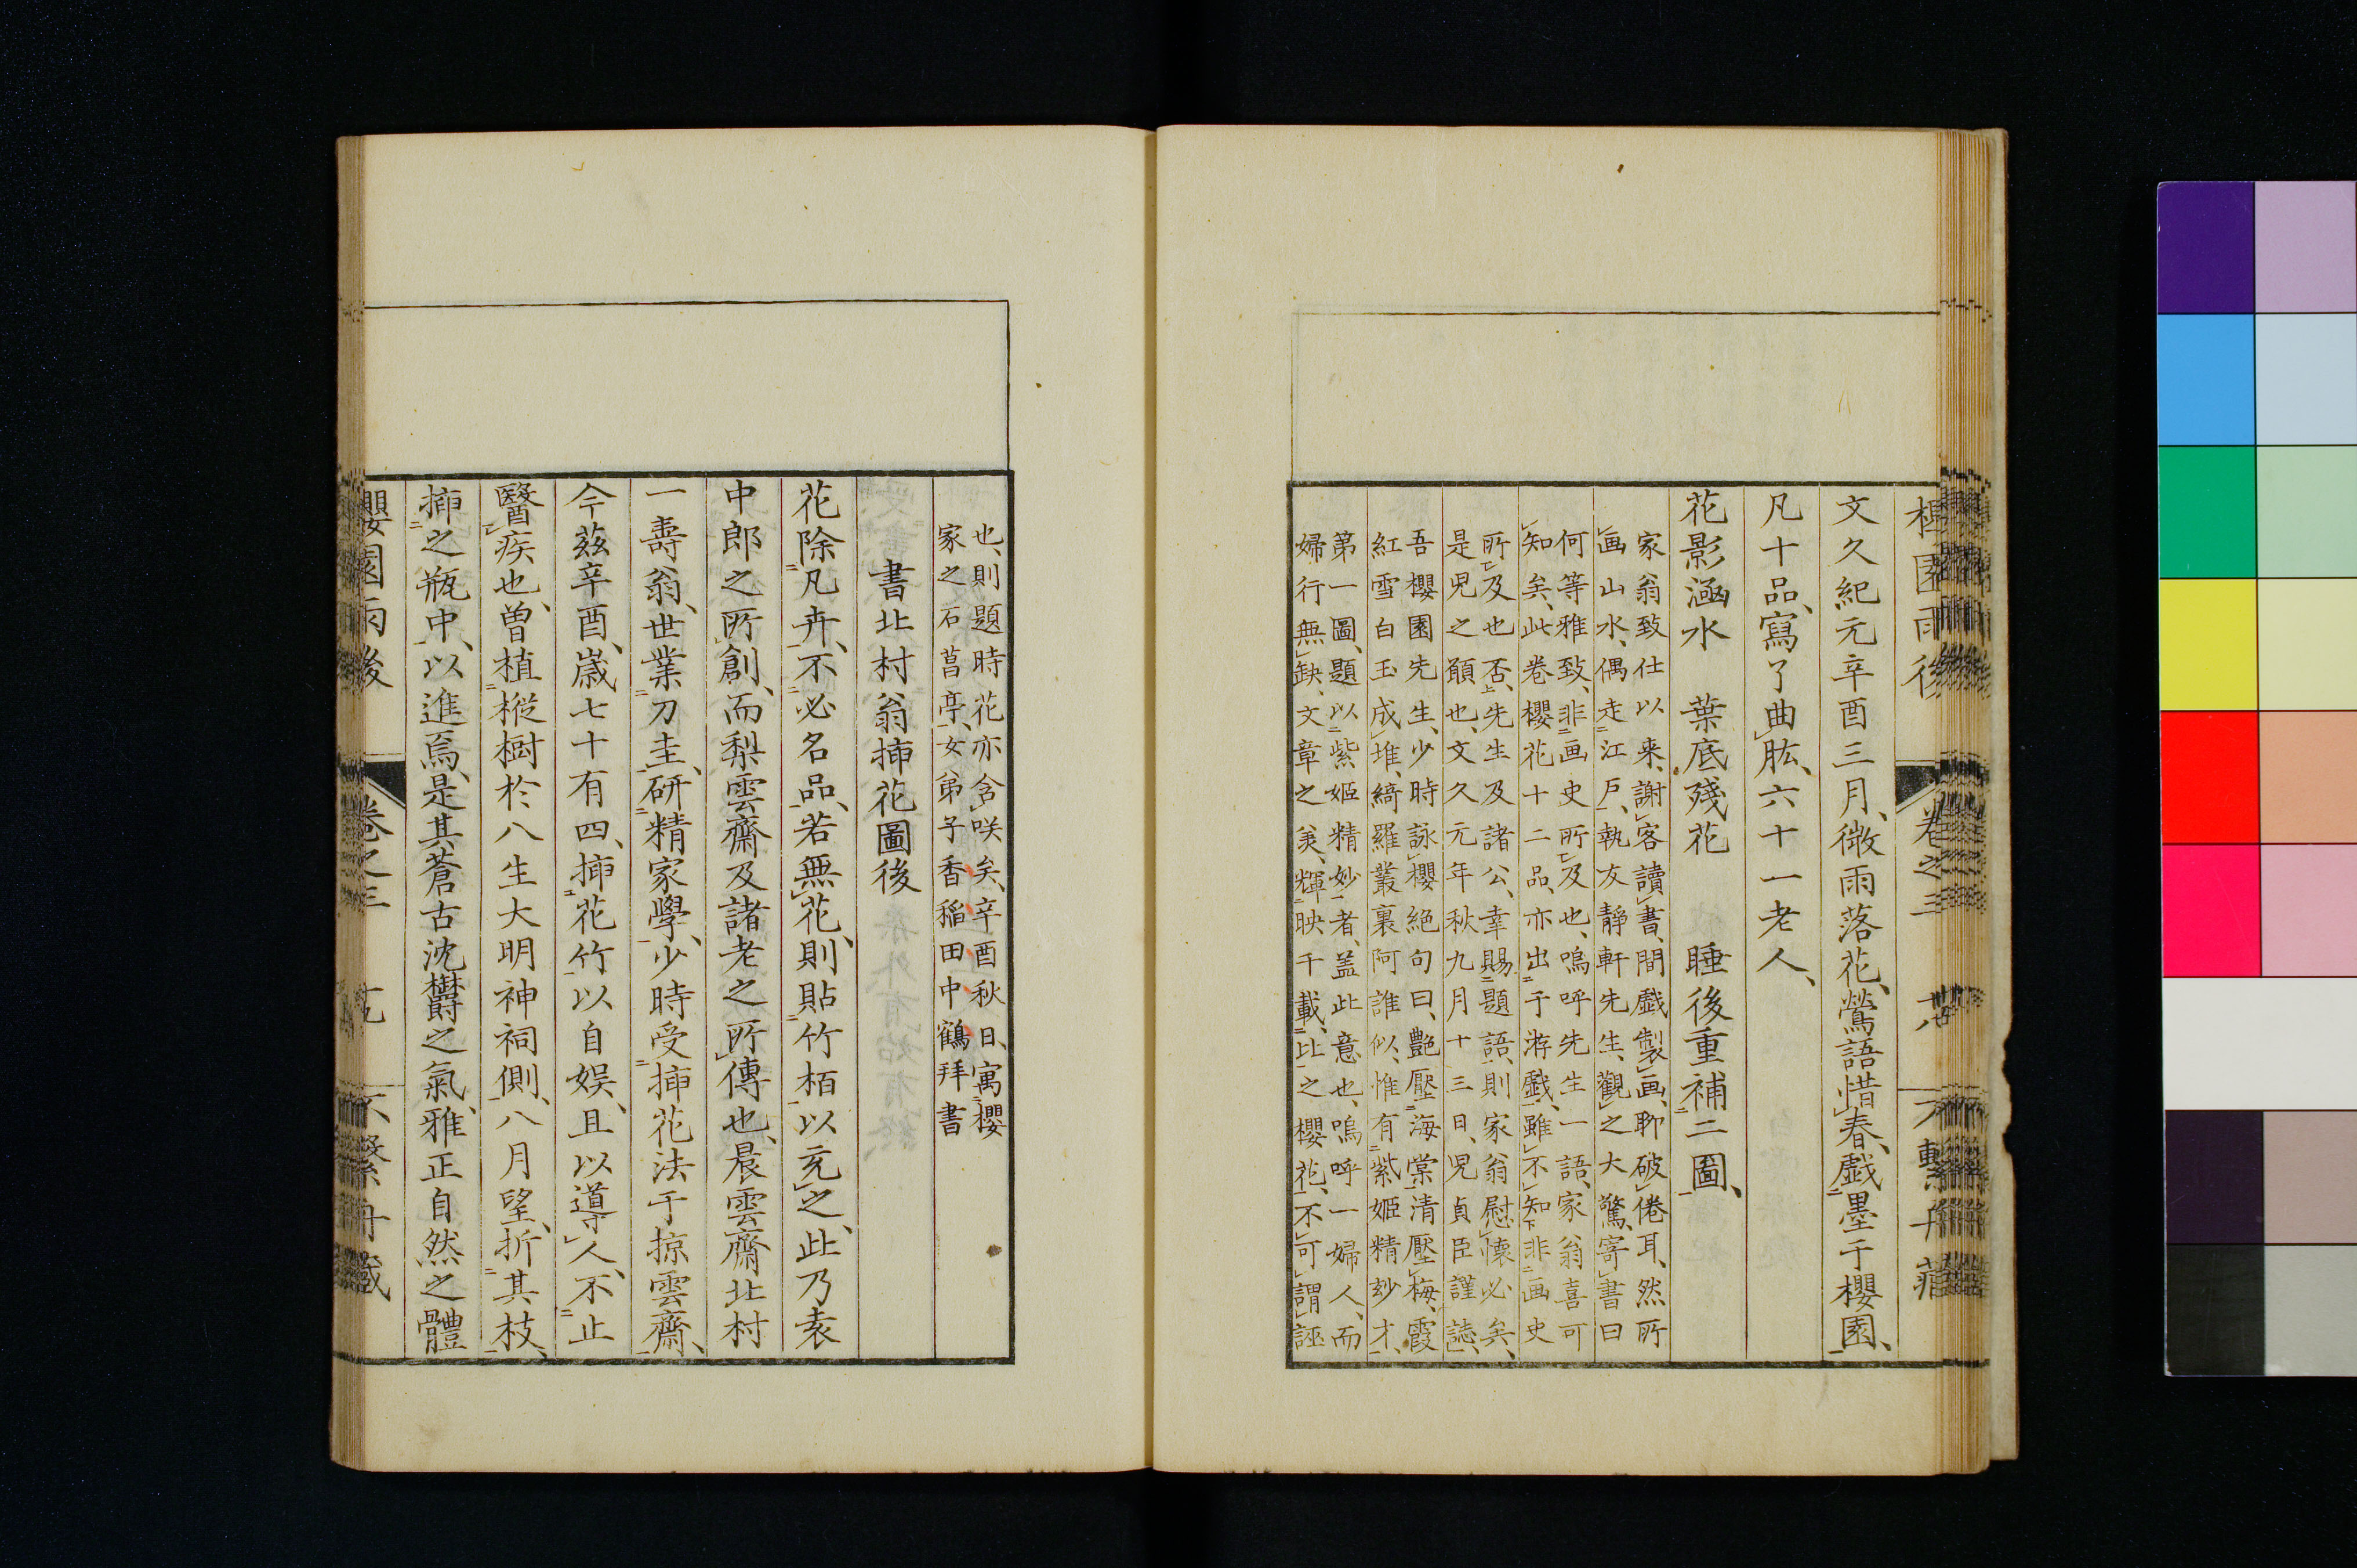 文久紀元辛酉三月、微雨落花、鶯語惜春、戲墨于櫻園、
凡十品、寫了曲肱、六十一老人、
花影涵水　葉底殘花　睡後重補二圖、
家翁致仕以来、謝客讀書、間戲製画、聊破倦耳、然所
画山水、偶走江戸、執友靜軒先生、觀之大驚、寄書曰
何等雅致、非画史所及也、嗚呼先生一語、家翁喜可
知矣、此卷櫻花十二品、亦出于游戲、雖不知非画史
所及也否、先生及諸公、幸賜題語、則家翁慰懷必矣、
是児之願也、文久元年秋九月十三日、児貞臣謹誌、
吾櫻園先生、少時詠櫻絶句曰、艷壓海棠清壓梅、霞
紅雪白玉成堆、綺羅叢裏阿誰似、惟有紫姫精妙才、
第一圖、題以紫姫精妙者、盖此意也、嗚呼一婦人、而
婦行無缺、文章之美、輝映千載、比之櫻花、不可謂誣
也、則題時花亦含咲矣、辛酉秋日、寓櫻
家之石菖亭、女弟子香稲田中鶴拜書
書北村翁挿花圖後
花除凡卉、不必名品、若無花、則貼竹栢以充之、此乃袁
中郎之所創、而梨雲齋及諸老之所傳也、晨雲齋北村
一壽翁、世業刀圭、研精家學、少時受挿花法于掠雲齋、
今茲辛酉、歳七十有四、挿花竹以自娯、且以導人、不止
醫疾也、曽植樅樹於八生大明神祠側、八月望、折其枝、
挿之瓶中、以進焉、是其蒼古沈欝之氣、雅正自然之體
櫻園雨後　卷之三